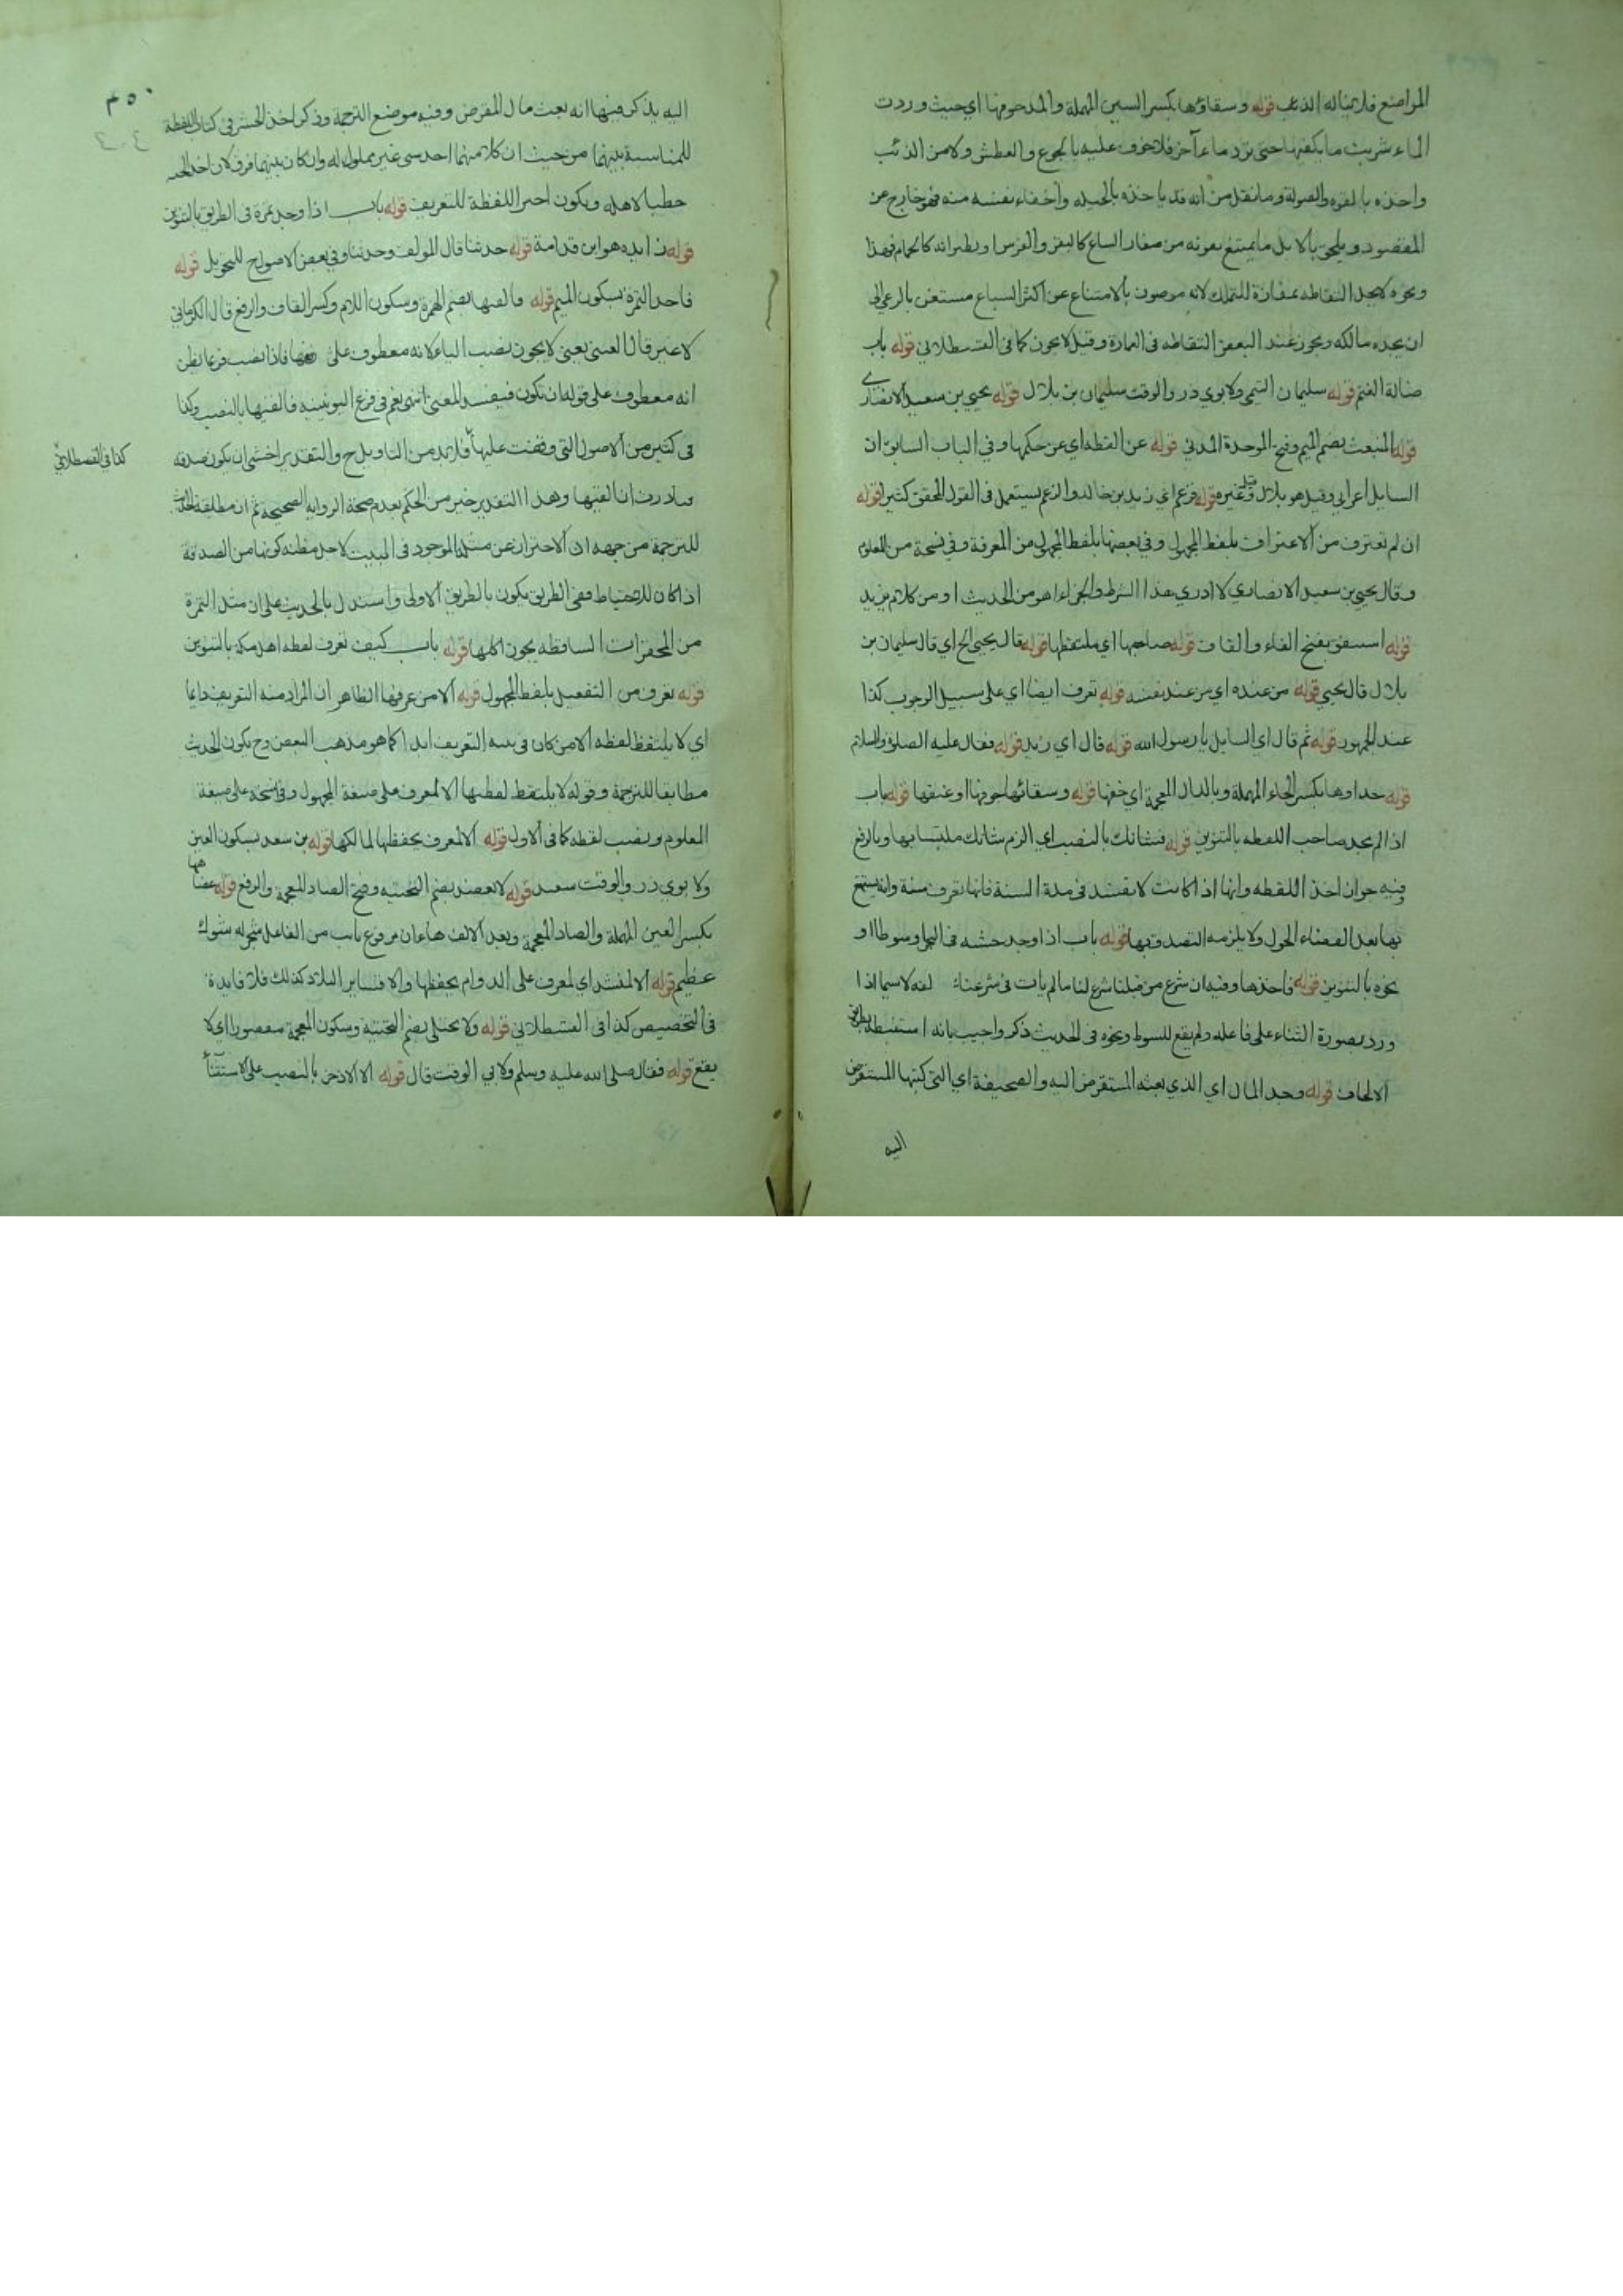 المواضع فلا يناله الذئب قوله وسقاؤها بكسر السين المهملة والمد جوفها اي حيث وردت
الماء شربت ما يكفيها حتى ترد ماء آخر فلا خوف عليه بالجوع والعطش ولا من الذئب
واخذه بالقوه والصولة وما نقل من انه قد ياخذه بالحيله واخفاء نفسه منه فهو خارج عن
المقصود ويلحق بالابل ما يمتنع بقوته من صغار السباع كالبقر والفرس او بطيرانه كالحمام فهذا
ونحوه لا يحل التقاطه بمفازة للتملك لانه مصون بالامتناع عن اكثر السباع مستغن بالرعي الى
ان يجده مالكه ويجوز عند البعض التقاطه في العمارة وقيل لا يجوز كما في القسطلاني قوله باب
ضالة الغنم قوله سليمان التيمي ولابوي ذر والوقت سليمان بن بلال قوله يحيى بن سعيد الانصاري
قوله المنبعث بضم الميم وفتح الموحدة المدني قوله عن اللقطه اي عن حكمها وفي الباب السابق ان
السايل اعرابي وقيل هو بلال وقيل غيره قوله فزعم اي زيد بن خالد والزعم يستعمل في القول المحقق كثيرا قوله
ان لم تعترف من الاعتراف بلفظ المجهول وفي بعضها بلفظ المجهول من المعرفة وفي نسخة من المعلوم
وقال يحيى بن سعيد الانصاري لا ادري هذا الشرط والجزاء اهو من الحديث او من كلام يزيد
قوله استنفق بفتح الفاء والقاف قوله صاحبها اي ملتقطها قوله قال يحيى الخ اي قال سليمان بن
بلال قال يحيى قوله من عنده اي من عند نفسه قوله تعرف ايضا اي على سبيل الوجوب كذا
عند الجمهور قوله ثم قال اي السايل يا رسول الله قوله قال اي زيد قوله فقال عليه الصلوة والسلام
قوله حذاوها بكسر الحاء المهملة وبالذال المعجمة اي خفها قوله وسقائها جوفها او عنقها قوله باب
اذا لم يجد صاحب اللقطه بالتنوين قوله فشانك بالنصب اي الزم شانك ملتبسا بها وبالرفع
وفيه جواز اخذ اللقطه وانها اذا كانت لا تفسد في مدة السنة فانها تعرف سنة وانه يستمتع
بها بعد انقضاء الحول ولا يلزمه التصدق بها قوله باب اذا وجد خشبه في البحر او سوطا او
نحوه بالتنوين قوله فاخذها وفيه ان شرع من قبلنا شرع لنا ما لم يات في شرعنا لفه لا سيما اذا
ورد بصورة الثناء على فاعله ولم يقع للسوط ونحوه في الحديث ذكر واجيب بانه استنبطه بطريق
الالحاق قوله وجد المال اي الذي بعثه المستقرض اليه والصحيفة اي التي كتبها المستقرض
اليه
٣٥٠
اليه يذكر فيها انه بعث مال المقرض وفيه موضع الترجمة وذكر اخذ الخشبة في كتاب اللقطة
للمناسبة بينهما من حيث ان كلا منهما اخذ شي غير مملوك له وان كان بينهما فرق لان اخذ الخشبه
حطبا لاهله ويكون اخذ اللقطة للتعريف قوله باب اذا وجد تمرة في الطريق بالتنوين
قوله زايده هو ابن قدامة قوله حدثنا قال المولف وحدثنا وفي بعض الاصول ح للتحويل قوله
فاجد التمرة بسكون الميم قوله فالقيها بضم الهمزة وسكون اللام وكسر القاف والرفع قال الكرماني
لا غير قال العيني يعني لا يجوز نصب الياء لانه معطوف على فاذا نصب فربما يظن
انه معطوف على قوله ان تكون فيفسد المعنى انتهى نعم في فرع اليونينيه فالقيها بالنصب وكذا
في كثير من الاصول التي وقفت عليها فلا بد من التاويل ح والتقدير اخشى ان يكون صدقه
كذا في القسطلاني
ان القيها وهذا التقدير خير من الحكم بعدم صحة الروايه الصحيحه ثم ان مطابقة الحديث
للترجمة من جهه ان الاحتراز عن مثل الموجود في البيت لاجل مظنه كونها من الصدقة
اذا كان للاحتياط ففي الطريق يكون بالطريق الاولى واستدل بالحديث على ان مثل التمرة
من المحقرات الساقطه يجوز اكلها قوله باب كيف تعرف لقطه اهل مكه بالتنوين
قوله تعرف من التفعيل بلفظ المجهول قوله الا من عرفها الظاهر ان المراد منه التعريف دايما
اي لا يلتقط لقطه الا من كان في نيته التعريف ابدا كما هو مذهب البعض وح يكون الحديث
مطابقا للترجمة وقوله لا يلتقط لقطتها الا لمعرف على صيغة المجهول وفي نسخة على صيغة
المعلوم ونصب لقطه كما في الاول قوله الا لمعرف يحفظها لمالكها قوله بن سعد بسكون العين
ولابوي ذر والوقت سعيد قوله لا يعضد بضم التحتيه وفتح الضاد المعجمة والرفع قوله عضاهها
بكسر العين المهملة والضاد المعجمة وبعد الالف هاءان مرفوع نايب من الفاعل شجر له شوك
عظيم قوله الا لمنشد اي لمعرف على الدوام يحفظها والا فساير البلاد كذلك فلا فايدة
في التخصيص كذا في القسطلاني قوله ولا يختلى بضم التحتية وسكون المعجمة مقصورا اي لا
يقطع قوله فقال صلى الله عليه وسلم ولابي الوقت قال قوله الا الاذخر بالنصب على الاستثنآ